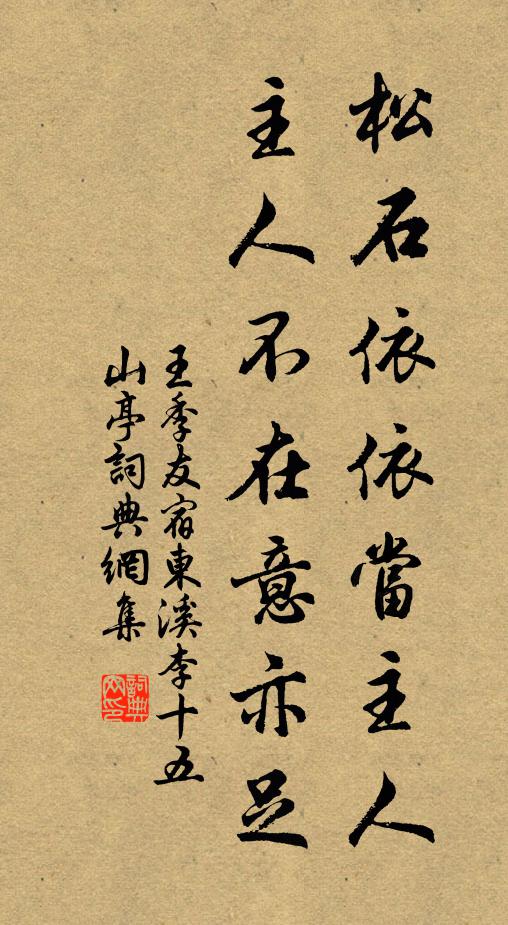 松石依依當主人
主人不在意亦足
王季友宿東溪李十五
山亭詞典網集
詞典網印